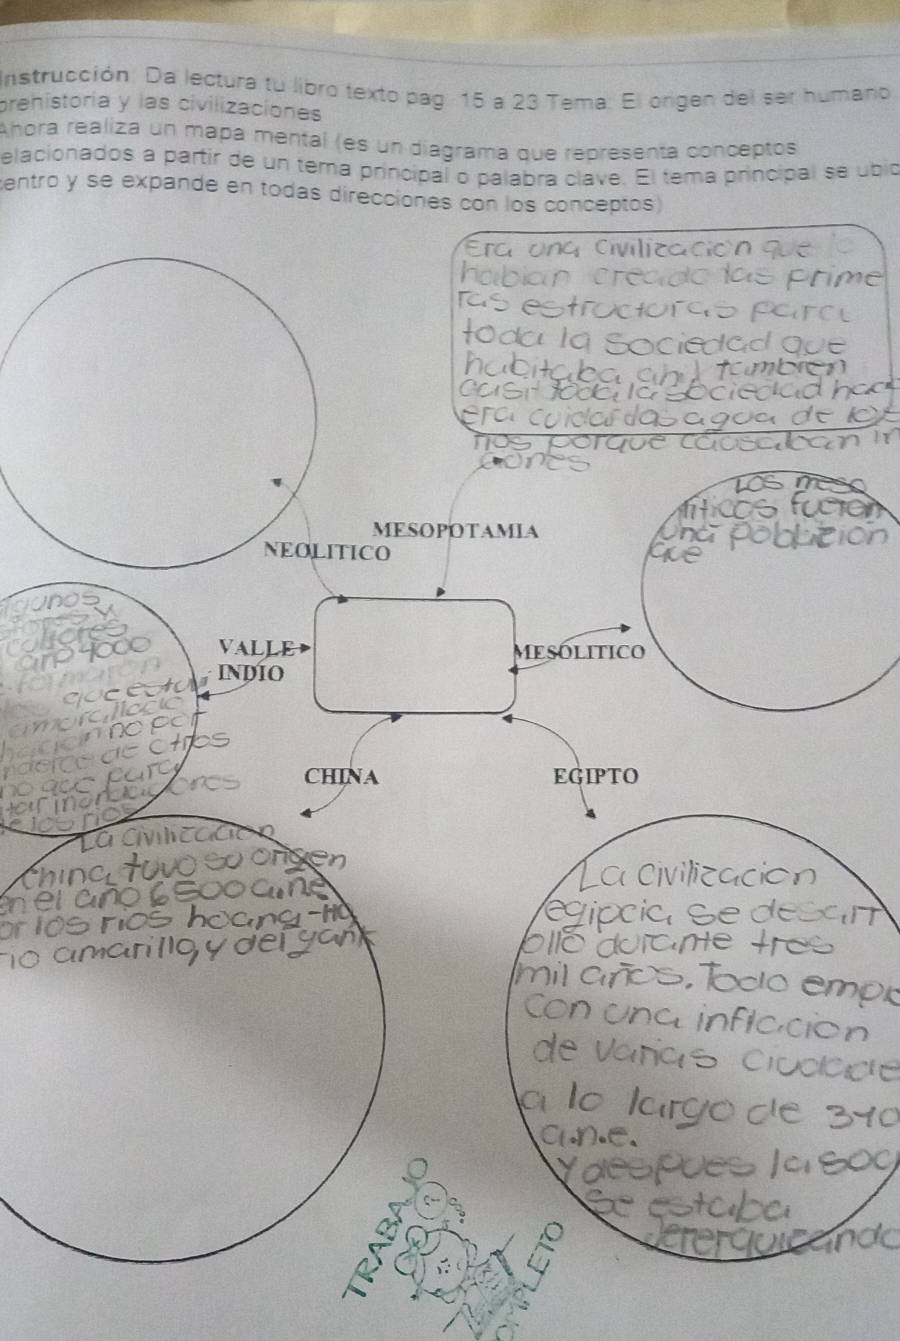 Instrucción: Da lectura tu libro texto pag. 15 a 23 Tema: El origen del ser humano
prehistoria y las civilizaciones
Ahora realiza un mapa mental (es un diagrama que representa conceptos
elacionados a partir de un tema principal o palabra clave. El tema principal se ubic
centro y se expande en todas direcciones con los conceptos)
Era una civilizacion que
habian creado las prime
ras estructuras para
toda la sociedad que
habitaba ahí tambien
casi toda la sociedad
era cuidar das agua de
porque causaban in
ones
MESOPOTAMIA
NEOLITICO
Los meso
liticos fueron
una poblazion
que
VALLE
INDIO
MESOLITICO
año 4000
formaron
que
hacian no por
de otros
no que para
de los rios
CHINA
EGIPTO
La civilizacion
china tuvo su origen
en el año 6500 a.ne
or los rios hoang-Ho
rio amarillo, y del yank
La civilizacion
egipcia se desarr
ollo durante tres
mil años. Todo empe
con una inflacion
de varias ciudade
a lo largo de 340
a.n.e.
Y despues la soc
se estaba
jererquizando
TRABAJO
?
COMPLETO